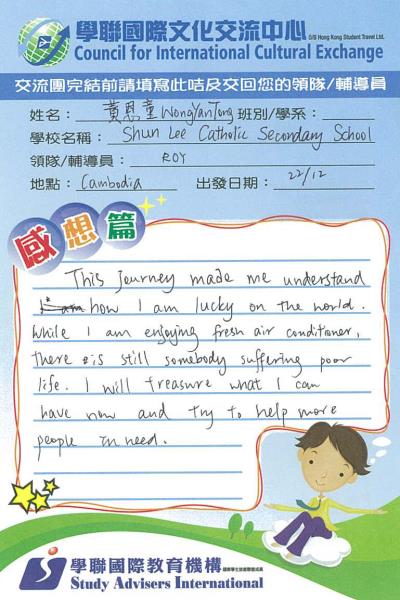 學聯國際文化交流中心 O/B Hong Kong Student Travel Ltd.
Council for International Cultural Exchange
交流團完結前請填寫此咭及交回您的領隊/輔導員
姓名： 黃恩童 Wong Yan Tong 班別/學系：
學校名稱： Shun Lee Catholic Secondary School
領隊/輔導員： ROY
地點： Cambodia 出發日期： 22/12
感想篇
This Journey made me understand
how I am lucky on the world.
While I am enjoying fresh air conditioner,
there is still somebody suffering poor
life. I will treasure what I can
have now and try to help more
people in need.
學聯國際教育機構
Study Advisers International